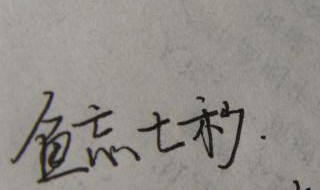 鱼忘七秒.